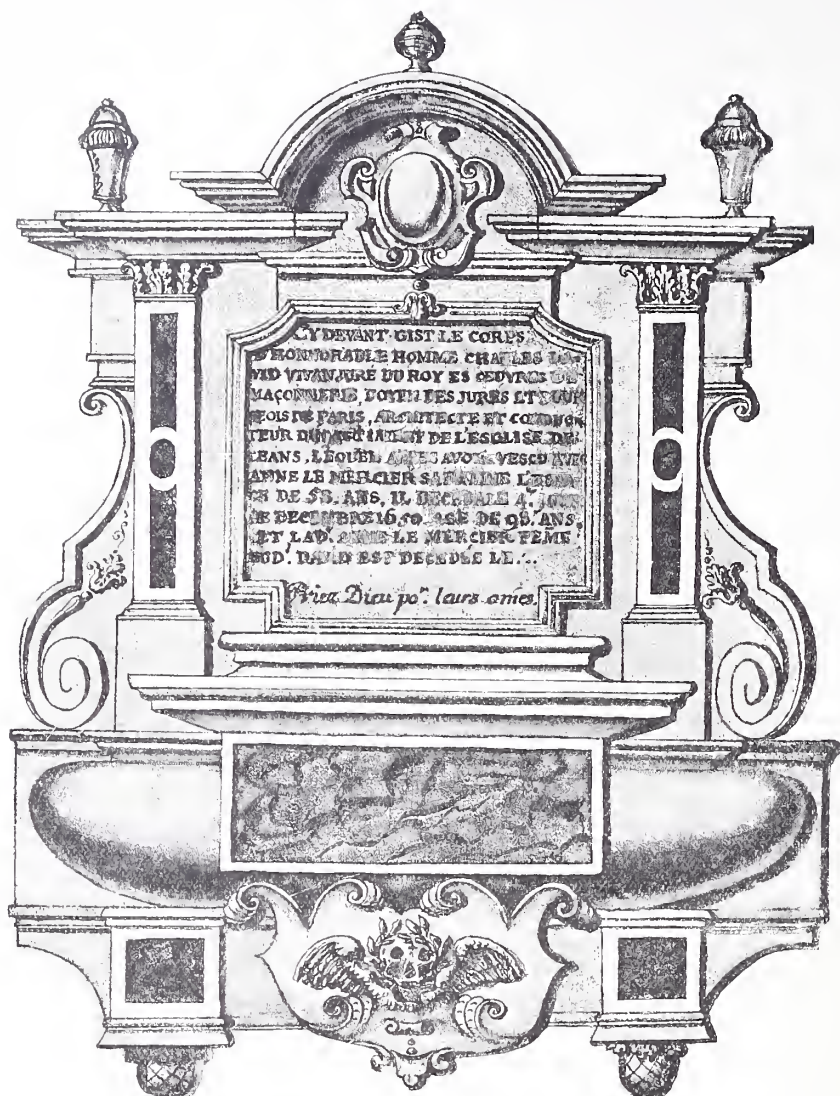 CY DEVANT GIST LE CORPS
D'HONNORABLE HOMME CHARLES DA
VID VIVAN JURÉ DU ROY ES ŒUVRES DE
MAÇONNERIE, DOYEN DES JURES ET BOUR
GEOIS DE PARIS, ARCHITECTE ET CŌDUC
TEUR DU DE L'ESGLISE DE
LEQUEL APRES AVOIR VESCU AVEC
ANNE LE MERCIER SA FEMME L'ESPA
CE DE 53. ANS, IL DECEDA LE 4.e JOUR
DE DECEMBRE 1650 AGÉ DE 98. ANS,
ET LAD. ANNE LE MERCIER FEME
DUD. DAVID EST DECEDÉE LE...
Priez Dieu po.r leurs ames.